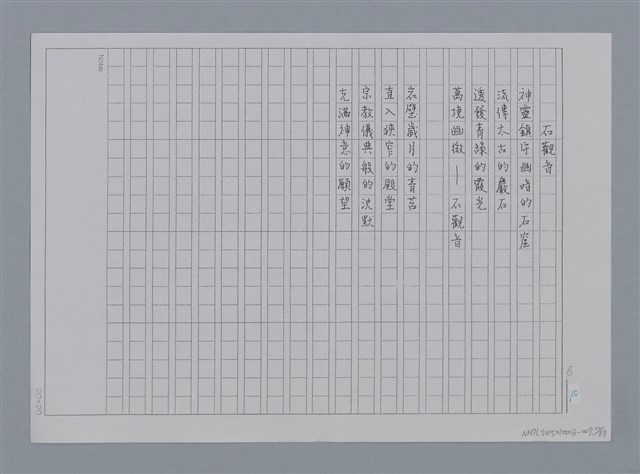 石觀音
神靈鎮守幽暗的石窟
流傳太古的巖石
透發青綠的霞光
萬境幽微—石觀音
岩壁歲月的青苔
直入狹窄的殿堂
宗教儀典般的沈默
充滿神意的願望
Note:
20×20